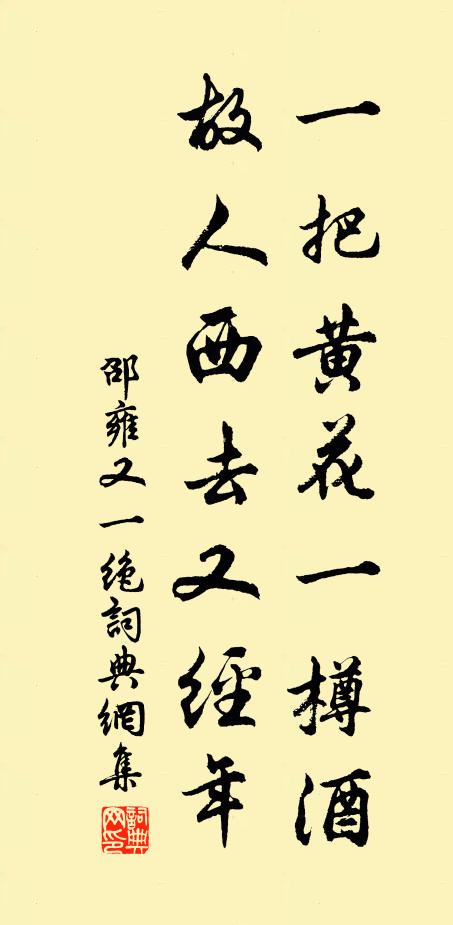 一把黄花一樽酒
故人西去又經年
邵雍又一绝詞典網集
詞典网印